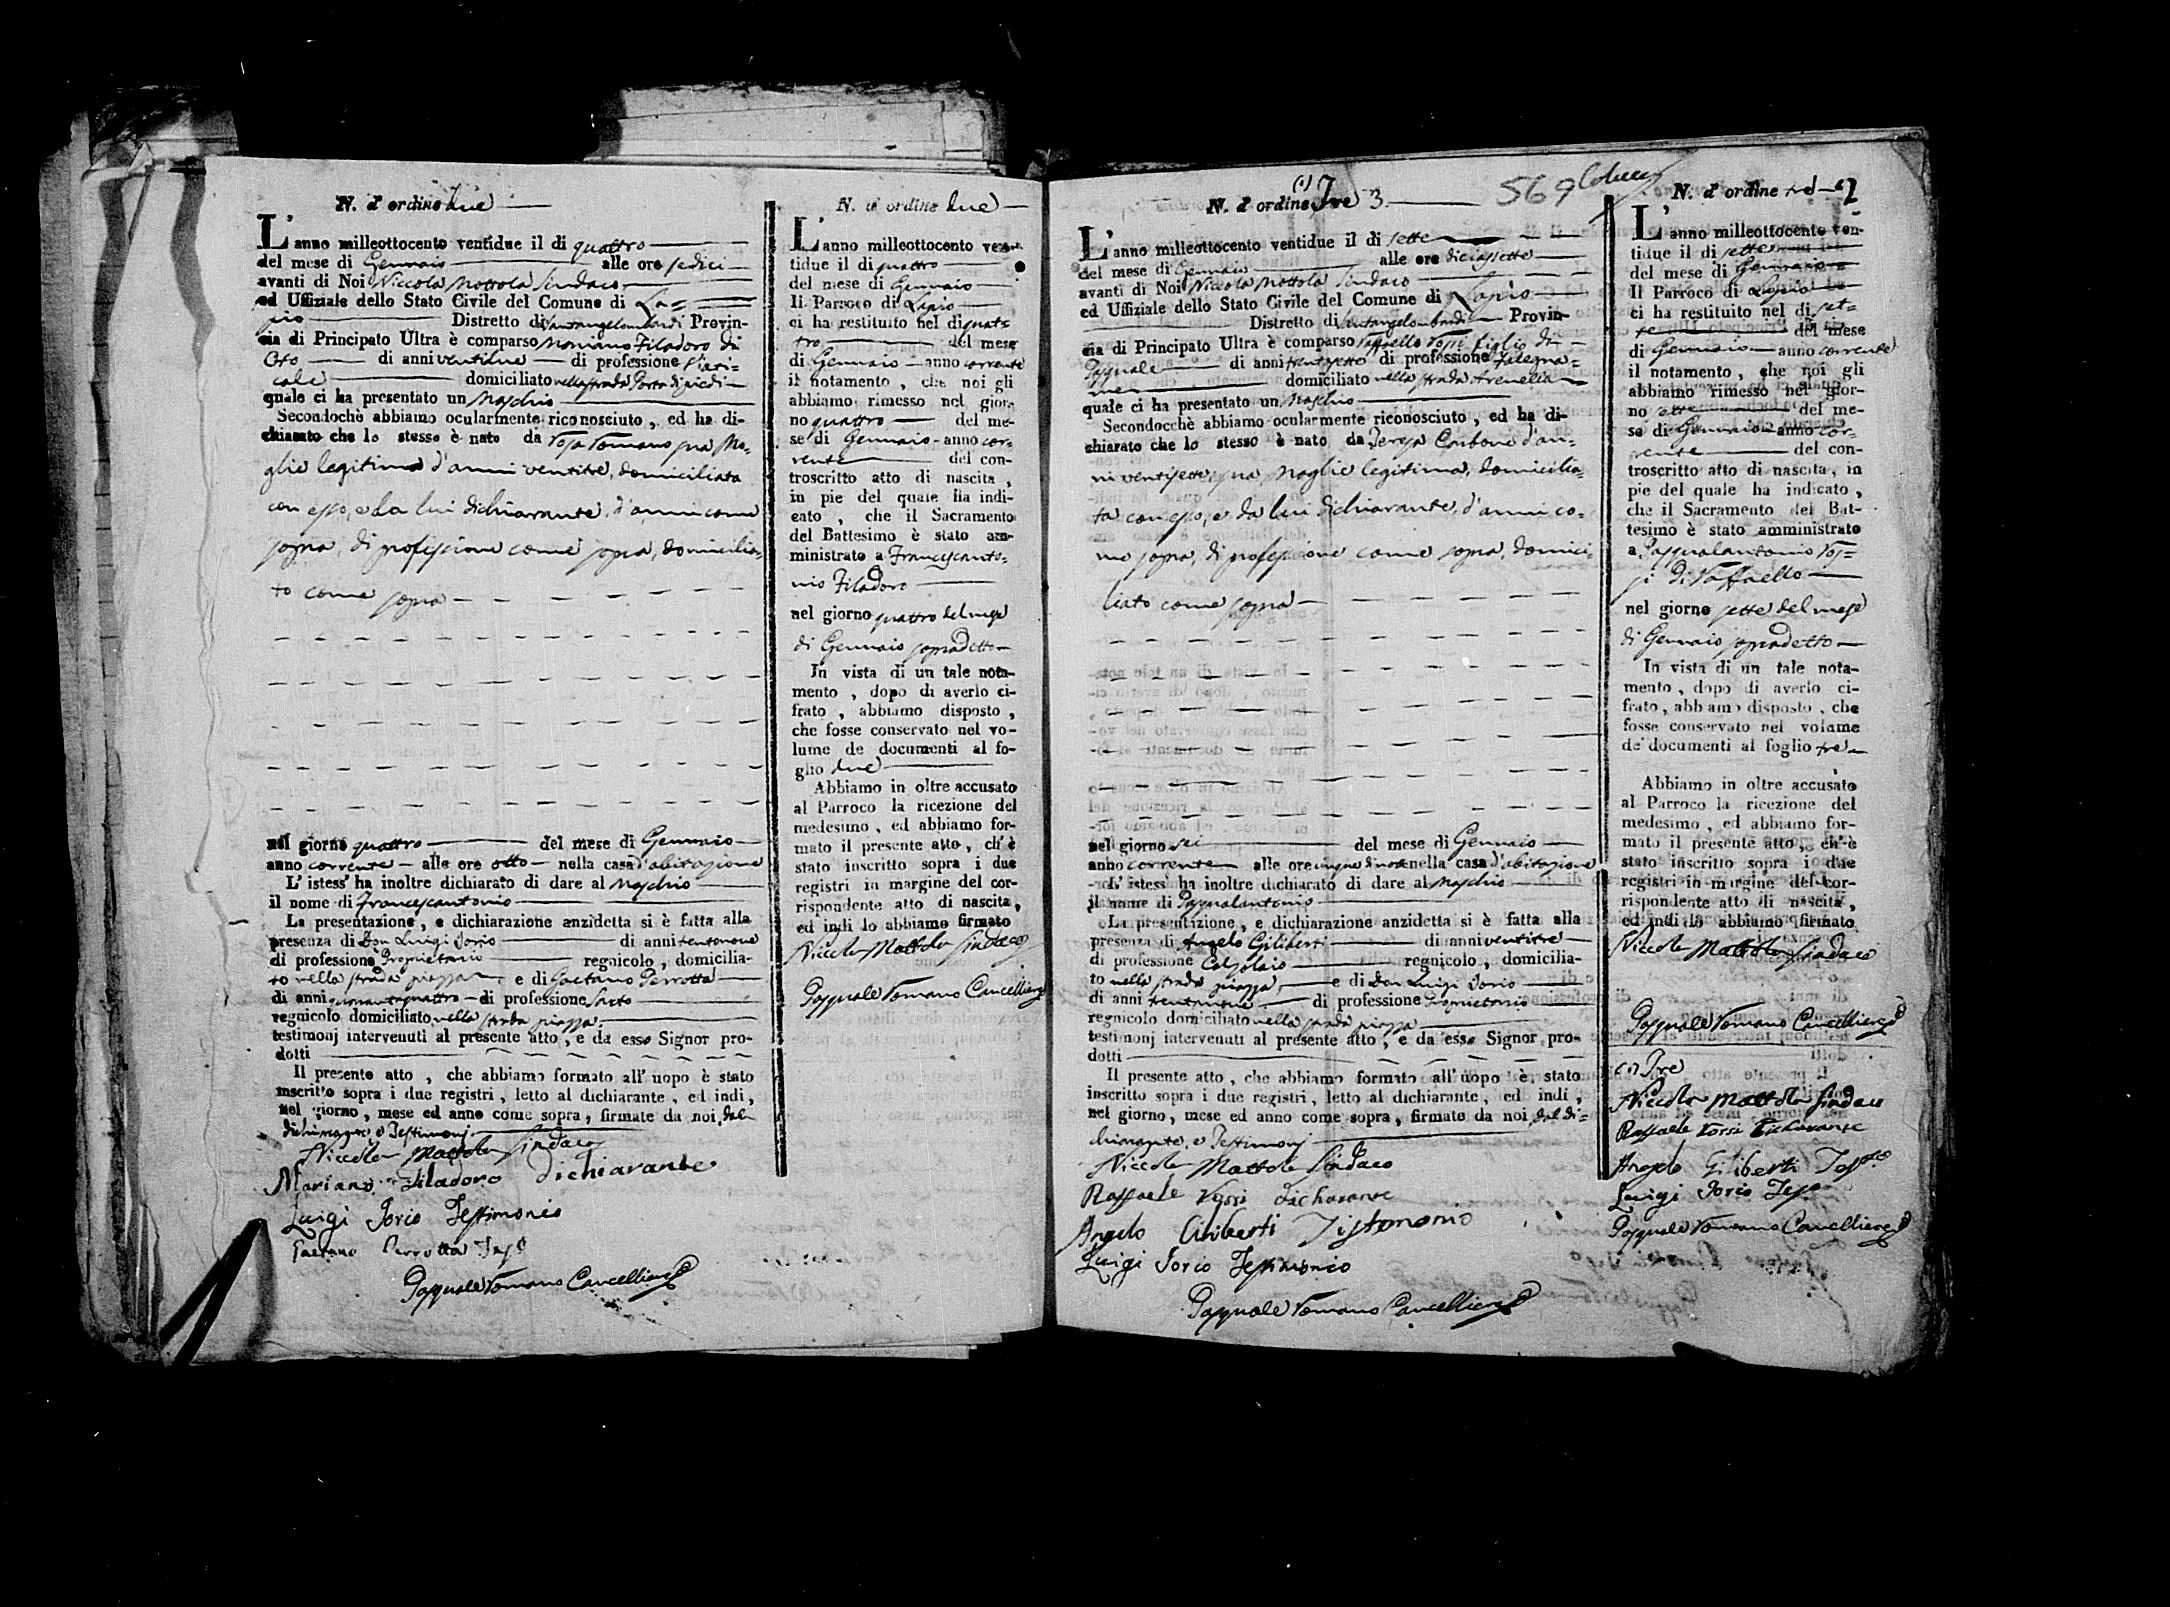 N. d' ordine due
L'anno milleottocento ventidue il di quattro
del mese di Gennaio alle ore sedici
avanti di Noi Niccola Mottola Sindaco
ed Uffiziale dello Stato Civile del Comune di La=
pio Distretto di Santangelolombardi Provin-
cia di Principato Ultra è comparso Mariano Filadoro di
di anni ventidue di professione
domiciliato nella strada Porta di piedi
quale ci ha presentato un Maschio
Secondochè abbiamo ocularmente riconosciuto, ed ha di-
chiarato che lo stesso è nato da Rosa Romano sua Mo=
glie legitima d'anni ventitre, domiciliata
con esso, e da lui dichiarante, d'anni come
sopra, di professione come sopra, domicilia=
to come sopra
nel giorno quattro del mese di Gennaio
anno corrente alle ore otto nella casa d'abitazione
L' istess' ha inoltre dichiarato di dare al Maschio
il nome di Francescantonio
La presentazione, e dichiarazione anzidetta si è fatta alla
presenza di Don Luigi Iorio di anni trentanove
di professione Proprietario regnicolo, domicilia-
to nella strada piazza e di Gaetano Perrotta
di anni quarantaquattro di professione Sarto
regnicolo domiciliato nella strada piazza
testimonj intervenuti al presente atto, e da esso Signor pro-
dotti
Il presente atto, che abbiamo formato all' uopo è stato
inscritto sopra i due registri, letto al dichiarante, ed indi,
nel giorno, mese ed anno come sopra, firmato da noi, dal
dichiarante e Testimonj
Niccola Mottola Sindaco
Mariano Filadoro Dichiarante
Luigi Iorio Testimonio
Gaetano Perrotta Tesṭ°
Pasquale Romano Cancelliere
N. d' ordine due
L'anno milleottocento ven-
tidue il di quattro
del mese di Gennaio
Il Parroco di Lapio
ci ha restituito nel di quat=
tro del mese
di Gennaio anno corrente
il notamento, che noi gli
abbiamo rimesso nel gior-
no quattro del me-
se di Gennaio anno cor=
rente del con-
troscritto atto di nascita,
in pie del quale ha indi-
cato, che il Sacramento
del Battesimo è stato am-
ministrato a Francescanto=
nio Filadoro
nel giorno quattro del mese
di Gennaio sopradetto
In vista di un tale nota-
mento, dopo di averlo ci-
frato, abbiamo disposto,
che fosse conservato nel vo-
lume de documenti al fo-
glio due
Abbiamo in oltre accusato
al Parroco la ricezione del
medesimo, ed abbiamo for-
mato il presente atto, ch' è
stato inscritto sopra i due
registri in margine del cor-
rispondente atto di nascita,
ed indi lo abbiamo firmato
Niccola Mottola Sindaco
Pasquale Romano Cancelliere
(1)
N. d' ordine Tre 3. 569
L'anno milleottocento ventidue il di sette
del mese di Gennaio alle ore diciassette
avanti di Noi Niccola Mottola Sindaco
ed Uffiziale dello Stato Civile del Comune di Lapio
Distretto di Santangelolombardi Provin-
cia di Principato Ultra è comparso Raffaello Rossi figlio di
Pasquale di anni trentasette di professione Falegna=
me domiciliato nella strada Arenella
quale ci ha presentato un Maschio
Secondocchè abbiamo ocularmente riconosciuto, ed ha di-
chiarato che lo stesso è nato da Teresa Carbone d'an-
ni ventisette, sua Moglie legitima, domicilia=
ta con esso, e da lui dichiarante, d'anni co=
me sopra, di professione come sopra, domici
liato come sopra
nel giorno sei del mese di Gennaio
anno corrente alle ore cinque di notte nella casa d'abitazione
L' istess' ha inoltre dichiarato di dare al Maschio
il nome di Pasqualantonio
La presentazione, e dichiarazione anzidetta si è fatta alla
presenza di Angelo Giliberti di anni ventitre
di professione Calzolaio regnicolo, domicilia-
to nella strada piazza, e di Don Luigi Iorio
di anni trentanove di professione Proprietario
regnicolo domiciliato nella strada piazza
testimonj intervenuti al presente atto, e da esso Signor pro-
dotti
Il presente atto, che abbiamo formato all' uopo è stato
inscritto sopra i due registri, letto al dichiarante, ed indi,
nel giorno, mese ed anno come sopra, firmato da noi, dal di=
chiarante, e Testimonj
Niccola Mottola Sindaco
Raffaele Rossi Dichiarante
Angelo Giliberti Tistimonio
Luigi Iorio Testimonio
Pasquale Romano Cancelliere
N. d' ordine tre 2
L'anno milleottocento ven-
tidue il di sette
del mese di Gennaio
Il Parroco di Lapio
ci ha restituito nel di set=
te del mese
di Gennaio anno corrente
il notamento, che noi gli
abbiamo rimesso nel gior-
no sette del me-
se di Gennaio anno cor=
rente del con-
troscritto atto di nascita, in
pie del quale ha indicato,
che il Sacramento del Bat-
tesimo è stato amministrato
a Pasqualantonio Ros=
si di Raffaello
nel giorno sette del mese
di Gennaio sopradetto
In vista di un tale nota-
mento, dopo di averlo ci-
frato, abbiamo disposto, che
fosse conservato nel volume
de' documenti al foglio tre
Abbiamo in oltre accusato
al Parroco la ricezione del
medesimo, ed abbiamo for-
mato il presente atto, ch' è
stato inscritto sopra i due
registri in margine del cor-
rispondente atto di nascita,
ed indi lo abbiamo firmato
Niccola Mottola Sindaco
Pasquale Romano Cancelliere
(1) Tre
Niccola Mottola Sindaco
Raffaele Rossi Dichiarante
Angelo Giliberti
Luigi Iorio
Pasquale Romano Cancelliere